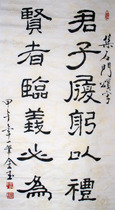 集石門頌字
君子履躬以禮
賢者臨義必為